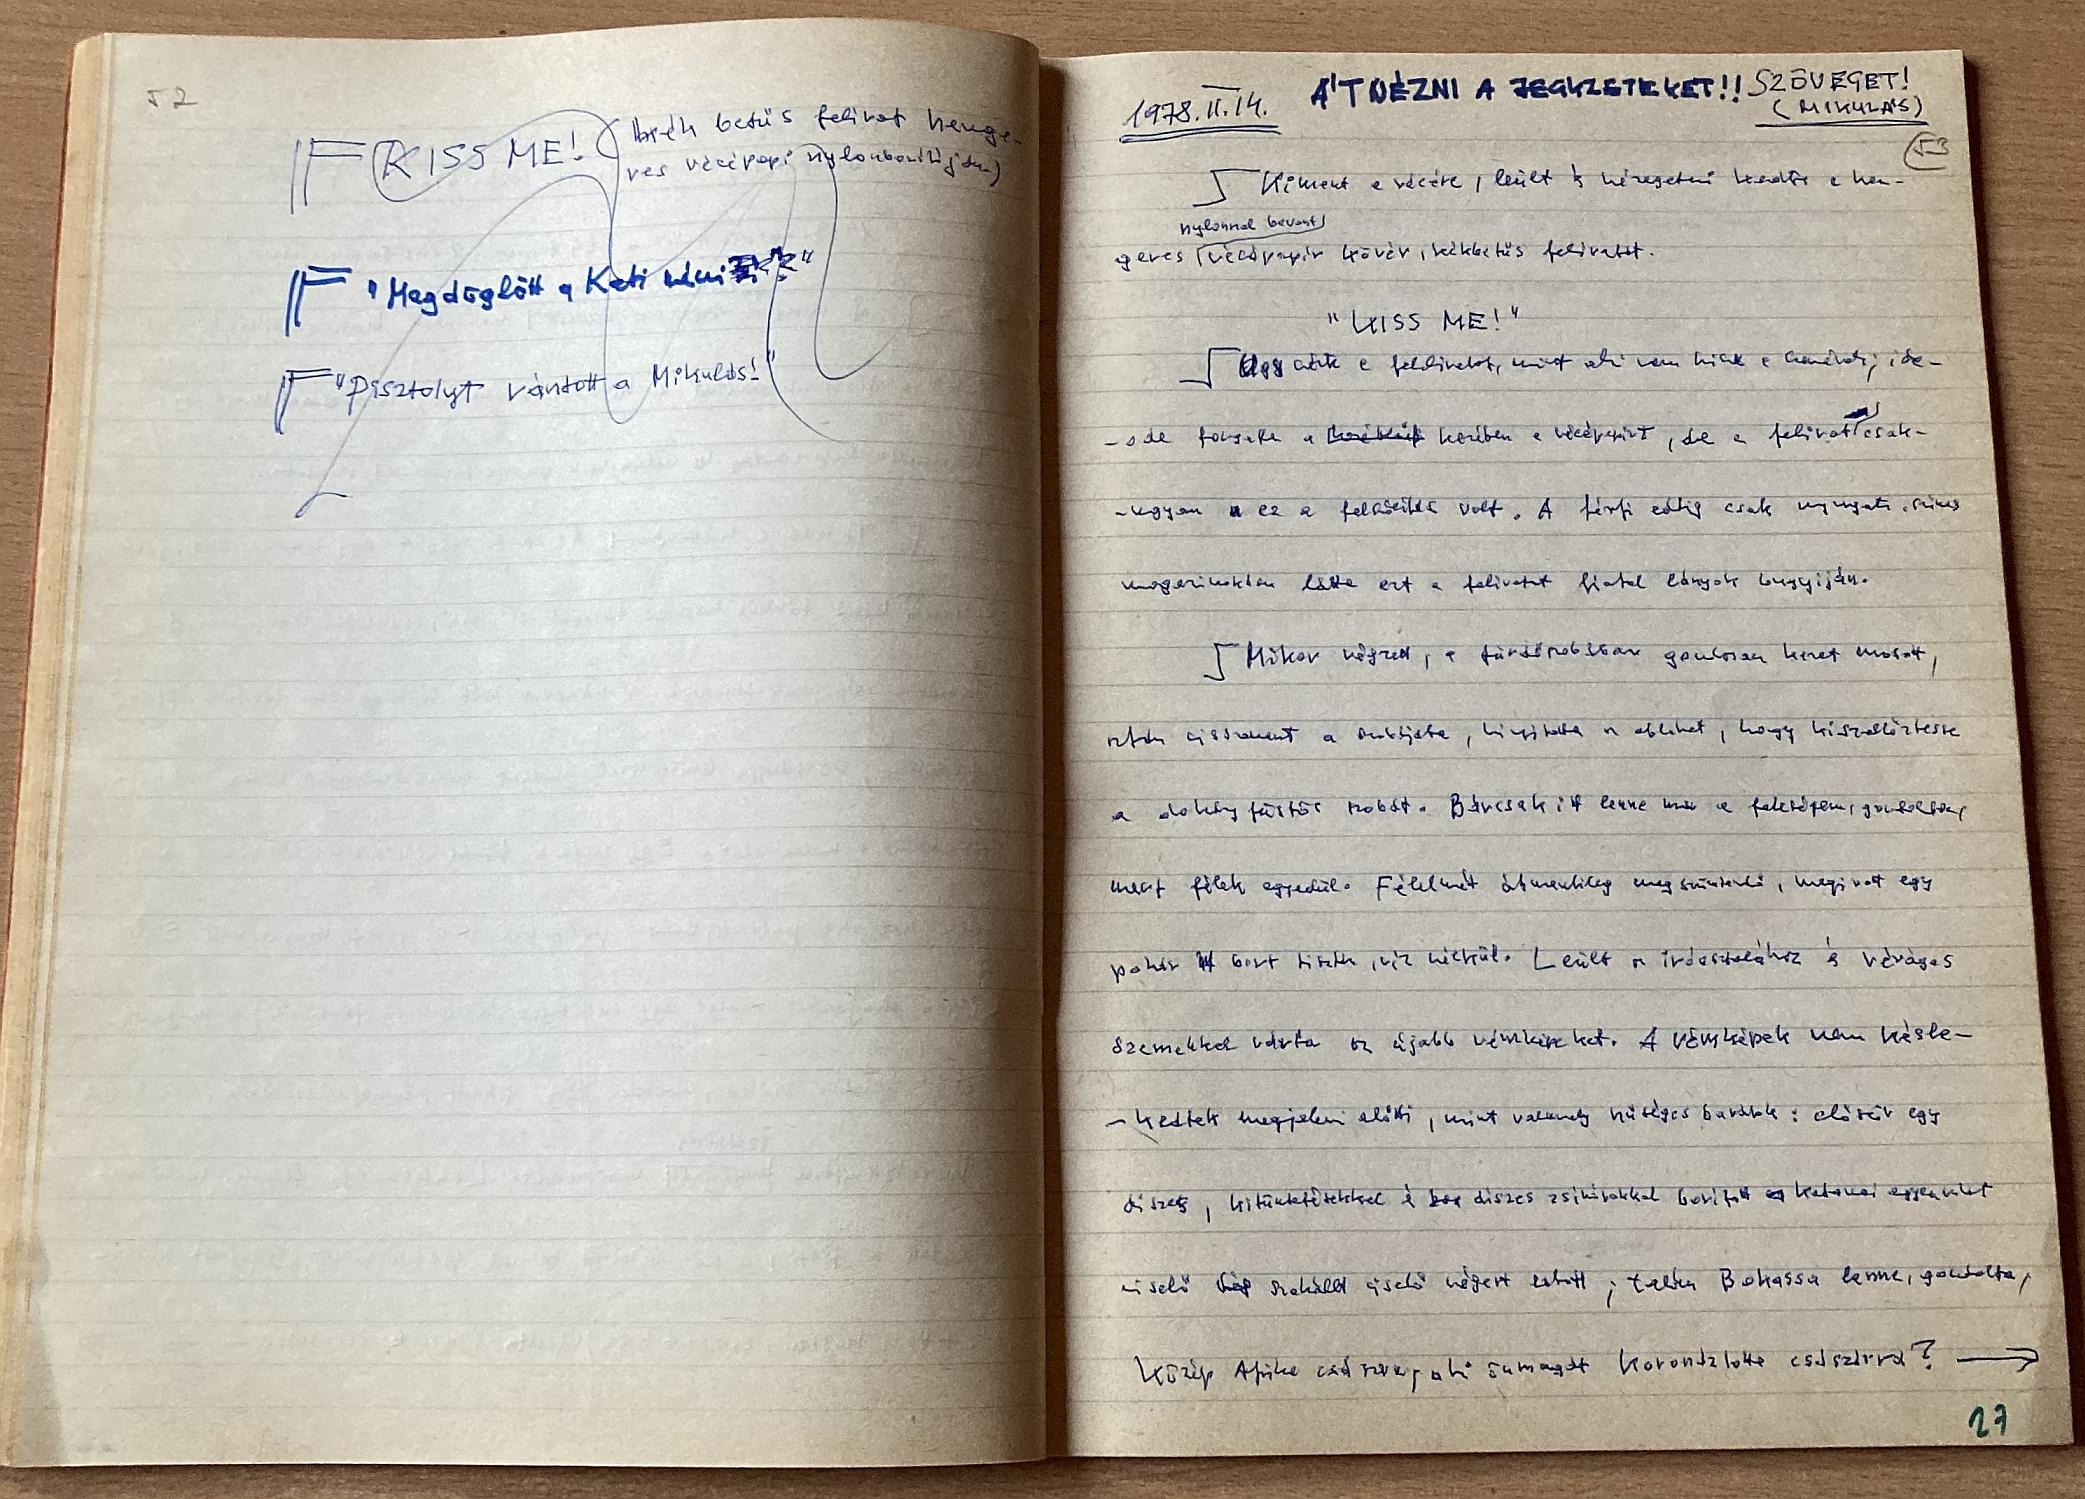 52
F KISS ME! (kék betűs felirat henge-
res vécépapir nylonborítóján)
F "Megdöglött a Kati néni?"
F "Pisztolyt rántott a Mikulás!"
1978.II.14. ÁTNÉZNI A JEGYZETEKET!! SZÖVEGET!
(MIKULÁS)
53
Kiment a vécére, leült és nézegetni kezdte a hen-
nylonnal bevont
geres vécépapir kövér, kékbetűs feliratát.
"KISS ME!"
Ugy nézte a feliratot, mint aki nem hisz a szemének, ide-
-oda forgatta a kezében a vécépapirt, de a felirat csak-
-ugyan ez a felszólítás volt. A férfi eddig csak nyugati szines
magazinokban látta ezt a feliratot fiatal lányok bugyiján.
Mikor végzett, a fürdőszobában gondosan kezet mosott,
aztán visszament a szobájába, kinyitotta az ablakot, hogy kiszellőztesse
a dohányfüstös szobát. Bárcsak itt lenne már a feleségem, gondolta,
mert félek egyedül. Félelmét átmenetileg megszüntendő, megivott egy
pohár bort tisztán, víz nélkül. Leült az íróasztalához és véráges
szemekkel várta az újabb rémképeket. A rémképek nem késle-
-kedtek megjelenni előtte, mint valamely hűséges barátok: először egy
díszes, kitüntetésekkel és díszes zsinórokkal borított katonai egyenruhát
viselő szakállt viselő négert látott; talán Bokassa lenne, gondolta,
Közép Afrika császára, aki önmagát koronáztatta császárrá? →
27